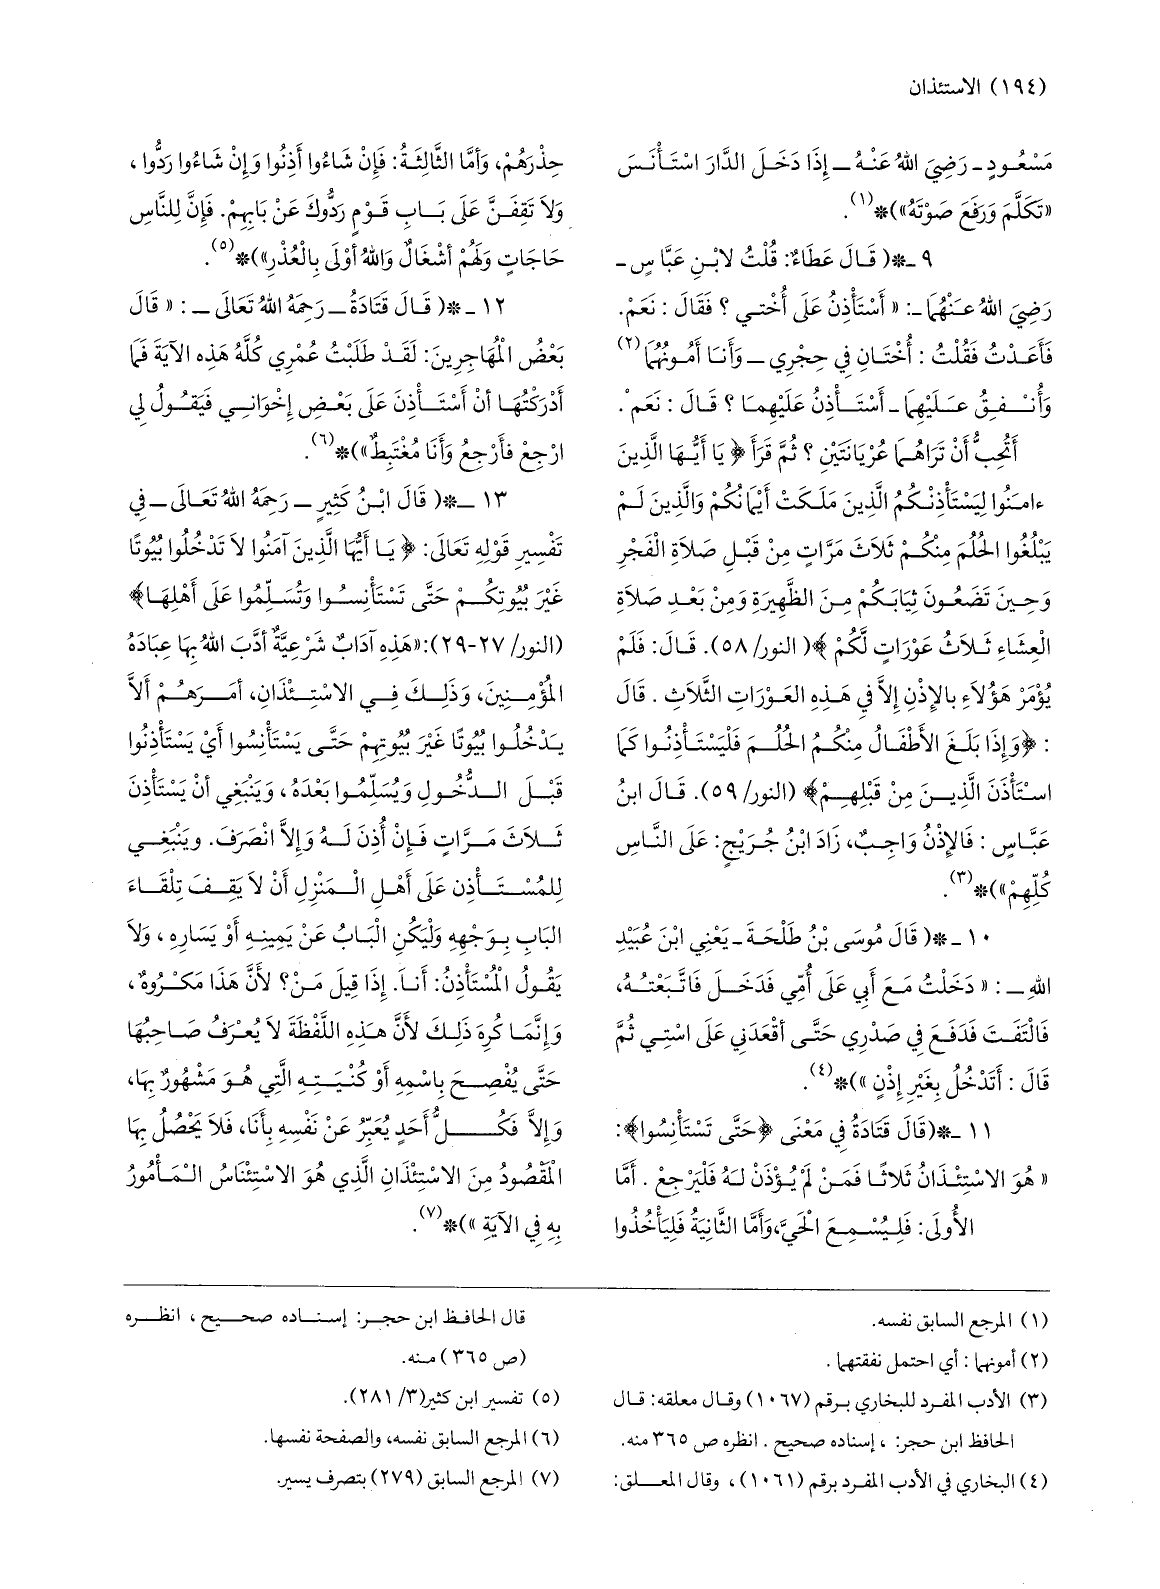 (١٩٤) الاستئذان
مَسْعُودٍ ـ رَضِيَ اللهُ عَنْهُ ـ إِذَا دَخَلَ الدَّارَ اسْتَأْنَسَ
«تَكَلَّمَ وَرَفَعَ صَوْتَهُ»)*(١).
٩ ـ*( قَالَ عَطَاءٌ: قُلْتُ لابْنِ عَبَّاسٍ ـ
رَضِيَ اللهُ عَنْهُمَا ـ: « أَسْتَأْذِنُ عَلَى أُخْتِي ؟ فَقَالَ : نَعَمْ.
فَأَعَدْتُ فَقُلْتُ : أُخْتَانِ فِي حِجْرِي ـ وَأَنَا أَمُونُهُمَا(٢)
وَأُنْفِقُ عَلَيْهِمَا ـ أَسْتَأْذِنُ عَلَيْهِمَا ؟ قَالَ : نَعَمْ .
أَتُحِبُّ أَنْ تَرَاهُمَا عُرْيَانَتَيْنِ ؟ ثُمَّ قَرَأَ ﴿ يَا أَيُّهَا الَّذِينَ
ءامَنُوا لِيَسْتَأْذِنْكُمُ الَّذِينَ مَلَكَتْ أَيْمَانُكُمْ وَالَّذِينَ لَمْ
يَبْلُغُوا الْحُلُمَ مِنْكُمْ ثَلَاثَ مَرَّاتٍ مِنْ قَبْلِ صَلاَةِ الْفَجْرِ
وَحِينَ تَضَعُونَ ثِيَابَكُمْ مِنَ الظَّهِيرَةِ وَمِنْ بَعْدِ صَلاَةِ
الْعِشَاءِ ثَلاَثُ عَوْرَاتٍ لَّكُمْ ﴾( النور/ ٥٨). قَالَ: فَلَمْ
يُؤْمَرْ هَؤُلاَءِ بالإِذْنِ إِلاَّ فِي هَذِهِ العَوْرَاتِ الثَّلاَثِ . قَالَ
: ﴿وَإِذَا بَلَغَ الأَطْفَالُ مِنْكُمُ الْحُلُمَ فَلْيَسْتَأْذِنُوا كَمَا
اسْتَأْذَنَ الَّذِينَ مِنْ قَبْلِهِمْ﴾ (النور/ ٥٩). قَالَ ابنُ
عَبَّاسٍ : فَالإِذْنُ وَاجِبٌ، زَادَ ابْنُ جُرَيْجٍ: عَلَى النَّاسِ
كُلِّهِمْ»)*(٣).
١٠ ـ*( قَالَ مُوسَى بْنُ طَلْحَةَ ـ يَعْنِي ابْنَ عُبَيْدِ
اللهِ ـ : « دَخَلْتُ مَعَ أَبِي عَلَى أُمِّي فَدَخَلَ فَاتَّبَعْتُهُ،
فَالْتَفَتَ فَدَفَعَ فِي صَدْرِي حَتَّى أَقْعَدَنِي عَلَى اسْتِي ثُمَّ
قَالَ : أَتَدْخُلُ بِغَيْرِ إِذْنٍ »)*(٤).
١١ ـ*(قَالَ قَتَادَةُ فِي مَعْنَى ﴿حَتَّى تَسْتَأْنِسُوا﴾:
« هُوَ الاسْتِئْذَانُ ثَلاَثًا فَمَنْ لَمْ يُؤْذَنْ لَهُ فَلْيَرْجِعْ . أَمَّا
الأُولَى: فَلِيُسْمِعَ الْحَيَّ،وَأَمَّا الثَّانِيَةُ فَلِيَأْخُذُوا
حِذْرَهُمْ، وَأَمَّا الثَّالِثَةُ: فَإِنْ شَاءُوا أَذِنُوا وَإِنْ شَاءُوا رَدُّوا ،
وَلاَ تَقِفَنَّ عَلَى بَابِ قَوْمٍ رَدُّوكَ عَنْ بَابِهِمْ. فَإِنَّ لِلنَّاسِ
حَاجَاتٍ وَلَهُمْ أَشْغَالٌ وَاللهُ أَوْلَى بِالْعُذْرِ»)*(٥).
١٢ ـ*( قَالَ قَتَادَةُ ـ رَحِمَهُ اللهُ تَعَالَى ـ : « قَالَ
بَعْضُ الْمُهَاجِرِينَ: لَقَدْ طَلَبْتُ عُمْرِي كُلَّهُ هَذِهِ الآيَةَ فَمَا
أَدْرَكْتُهَا أَنْ أَسْتَأْذِنَ عَلَى بَعْضِ إِخْوَانِي فَيَقُولُ لِي
ارْجِعْ فَأَرْجِعُ وَأَنَا مُغْتَبِطٌ»)*(٦).
١٣ ـ*( قَالَ ابْنُ كَثِيرٍ ـ رَحِمَهُ اللهُ تَعَالَى ـ فِي
تَفْسِيرِ قَوْلِهِ تَعَالَى: ﴿ يَا أَيُّهَا الَّذِينَ آمَنُوا لاَ تَدْخُلُوا بُيُوتًا
غَيْرَ بُيُوتِكُمْ حَتَّى تَسْتَأْنِسُوا وَتُسَلِّمُوا عَلَى أَهْلِهَا﴾
(النور/ ٢٧-٢٩):«هَذِهِ آدَابٌ شَرْعِيَّةٌ أَدَّبَ اللهُ بِهَا عِبَادَهُ
الْمُؤْمِنِينَ، وَذَلِكَ فِي الاسْتِئْذَانِ، أَمَرَهُمْ أَلاَّ
يَدْخُلُوا بُيُوتًا غَيْرَ بُيُوتِهِمْ حَتَّى يَسْتَأْنِسُوا أَيْ يَسْتَأْذِنُوا
قَبْلَ الدُّخُولِ وَيُسَلِّمُوا بَعْدَهُ ، وَيَنْبَغِي أَنْ يَسْتَأْذِنَ
ثَلاَثَ مَرَّاتٍ فَإِنْ أُذِنَ لَهُ وَإِلاَّ انْصَرَفَ. وَيَنْبَغِي
لِلْمُسْتَأْذِنِ عَلَى أَهْلِ الْمَنْزِلِ أَنْ لاَ يَقِفَ تِلْقَاءَ
البَابِ بِوَجْهِهِ وَلْيَكُنِ الْبَابُ عَنْ يَمِينِهِ أَوْ يَسَارِهِ ، وَلاَ
يَقُولُ الْمُسْتَأْذِنُ: أَنَا. إِذَا قِيلَ مَنْ؟ لأَنَّ هَذَا مَكْرُوهٌ،
وَإِنَّمَا كُرِهَ ذَلِكَ لأَنَّ هَذِهِ اللَّفْظَةَ لاَ يُعْرَفُ صَاحِبُهَا
حَتَّى يُفْصِحَ بِاسْمِهِ أَوْ كُنْيَتِهِ الَّتِي هُوَ مَشْهُورٌ بِهَا،
وَإِلاَّ فَكُلُّ أَحَدٍ يُعَبِّرُ عَنْ نَفْسِهِ بِأَنَا، فَلاَ يَحْصُلُ بِهَا
الْمَقْصُودُ مِنَ الاسْتِئْذَانِ الَّذِي هُوَ الاسْتِئْنَاسُ الْمَأْمُورُ
بِهِ فِي الآيَةِ »)*(٧).
(١) المرجع السابق نفسه.
(٢) أمونهما : أي احتمل نفقتهما .
(٣) الأدب المفرد للبخاري برقم (١٠٦٧) وقال معلقه: قال
الحافظ ابن حجر: ، إسناده صحيح . انظره ص ٣٦٥ منه.
(٤) البخاري في الأدب المفرد برقم (١٠٦١) ، وقال المعلق:
قال الحافظ ابن حجر: إسناده صحيح ، انظره
(ص ٣٦٥) منه.
(٥) تفسير ابن كثير(٣/ ٢٨١).
(٦) المرجع السابق نفسه، والصفحة نفسها.
(٧) المرجع السابق (٢٧٩) بتصرف يسير.